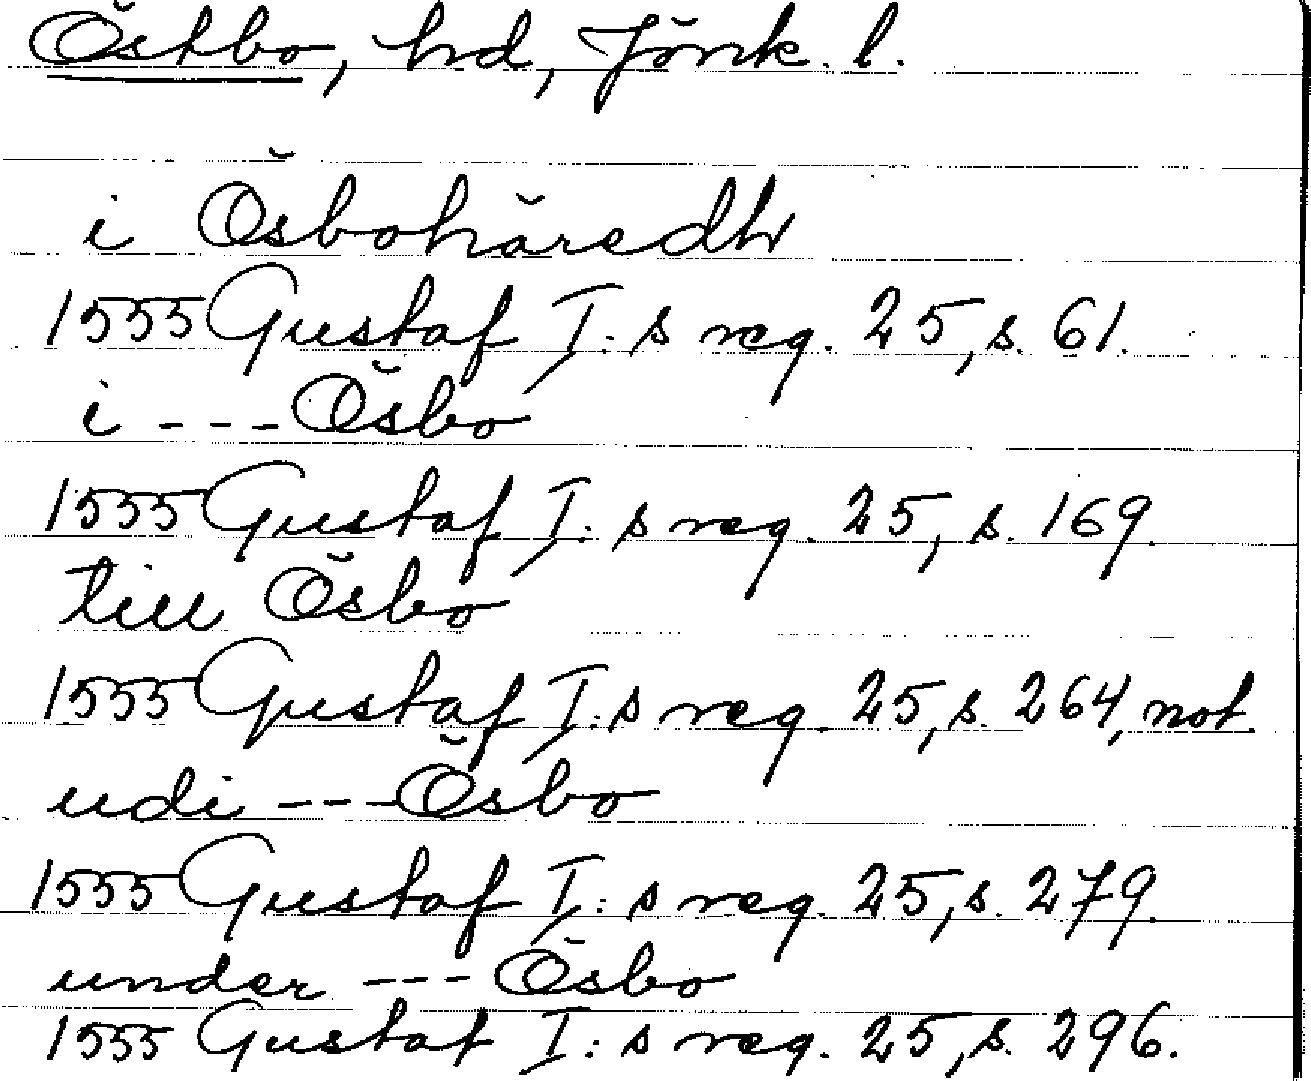 Östbo, hd, Jönk. l.
i Ösbohäredh
1555 Gustaf I:s reg. 25, s. 61.
i --- Ösbo
1555 Gustaf I:s reg. 25, s. 169.
till Ösbo
1555 Gustaf I:s reg. 25, s. 264, not.
udi --- Ösbo
1555 Gustaf I:s reg. 25, s. 279.
under --- Ösbo
1555 Gustaf I:s reg. 25, s. 296.